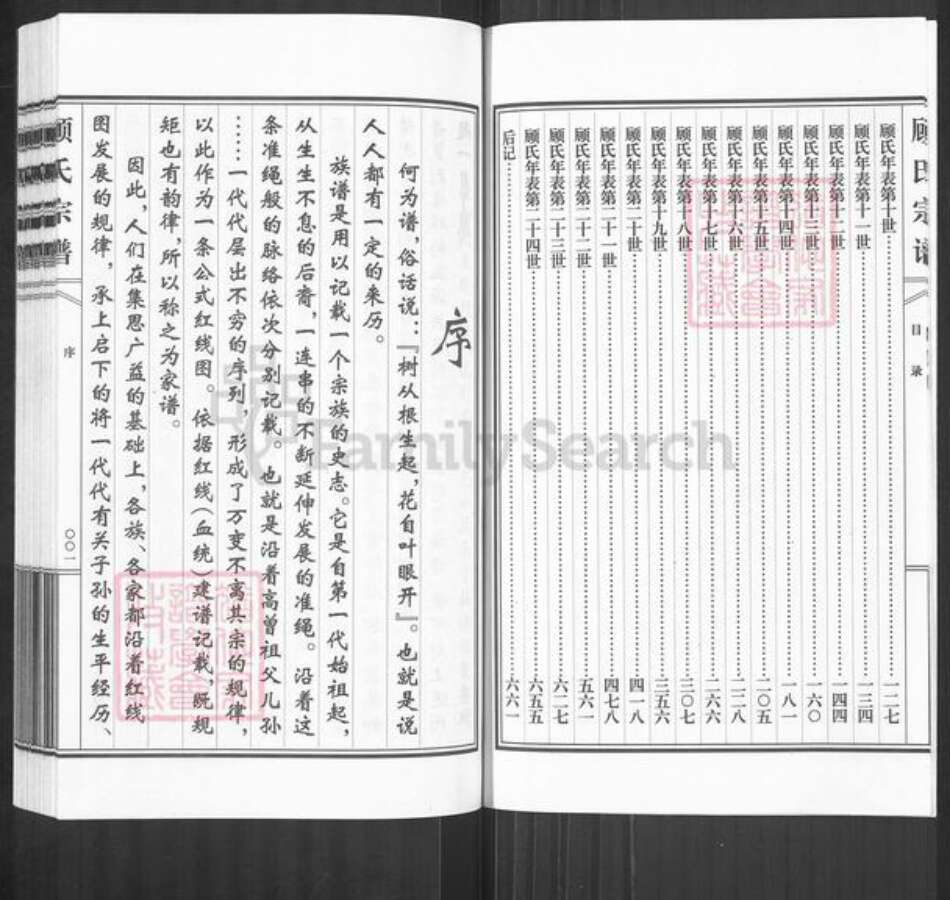 顾氏宗谱
目录
顾氏年表第十世 一二七
顾氏年表第十一世 一三四
顾氏年表第十二世 一四四
顾氏年表第十三世 一六〇
顾氏年表第十四世 一八一
顾氏年表第十五世 二〇五
顾氏年表第十六世 二二八
顾氏年表第十七世 二六六
顾氏年表第十八世 三〇七
顾氏年表第十九世 三五六
顾氏年表第二十世 四一八
顾氏年表第二十一世 四七八
顾氏年表第二十二世 五六一
顾氏年表第二十三世 六二七
顾氏年表第二十四世 六五五
后记 六六一
序
何为谱，俗话说：『树从根生起，花自叶眼开』。也就是说
人人都有一定的来历。
族谱是用以记载一个宗族的史志。它是自第一代始祖起，
从生生不息的后裔，一连串的不断延伸发展的准绳。沿着这
条准绳般的脉络依次分别记载。也就是沿着高曾祖父儿孙
……一代代层出不穷的序列，形成了万变不离其宗的规律，
以此作为一条公式红线图。依据红线（血统）建谱记载，既规
矩也有韵律，所以称之为家谱。
因此，人们在集思广益的基础上，各族、各家都沿着红线
图发展的规律，承上启下的将一代代有关子孙的生平经历、
顾氏宗谱
序
〇〇一
FamilySearch